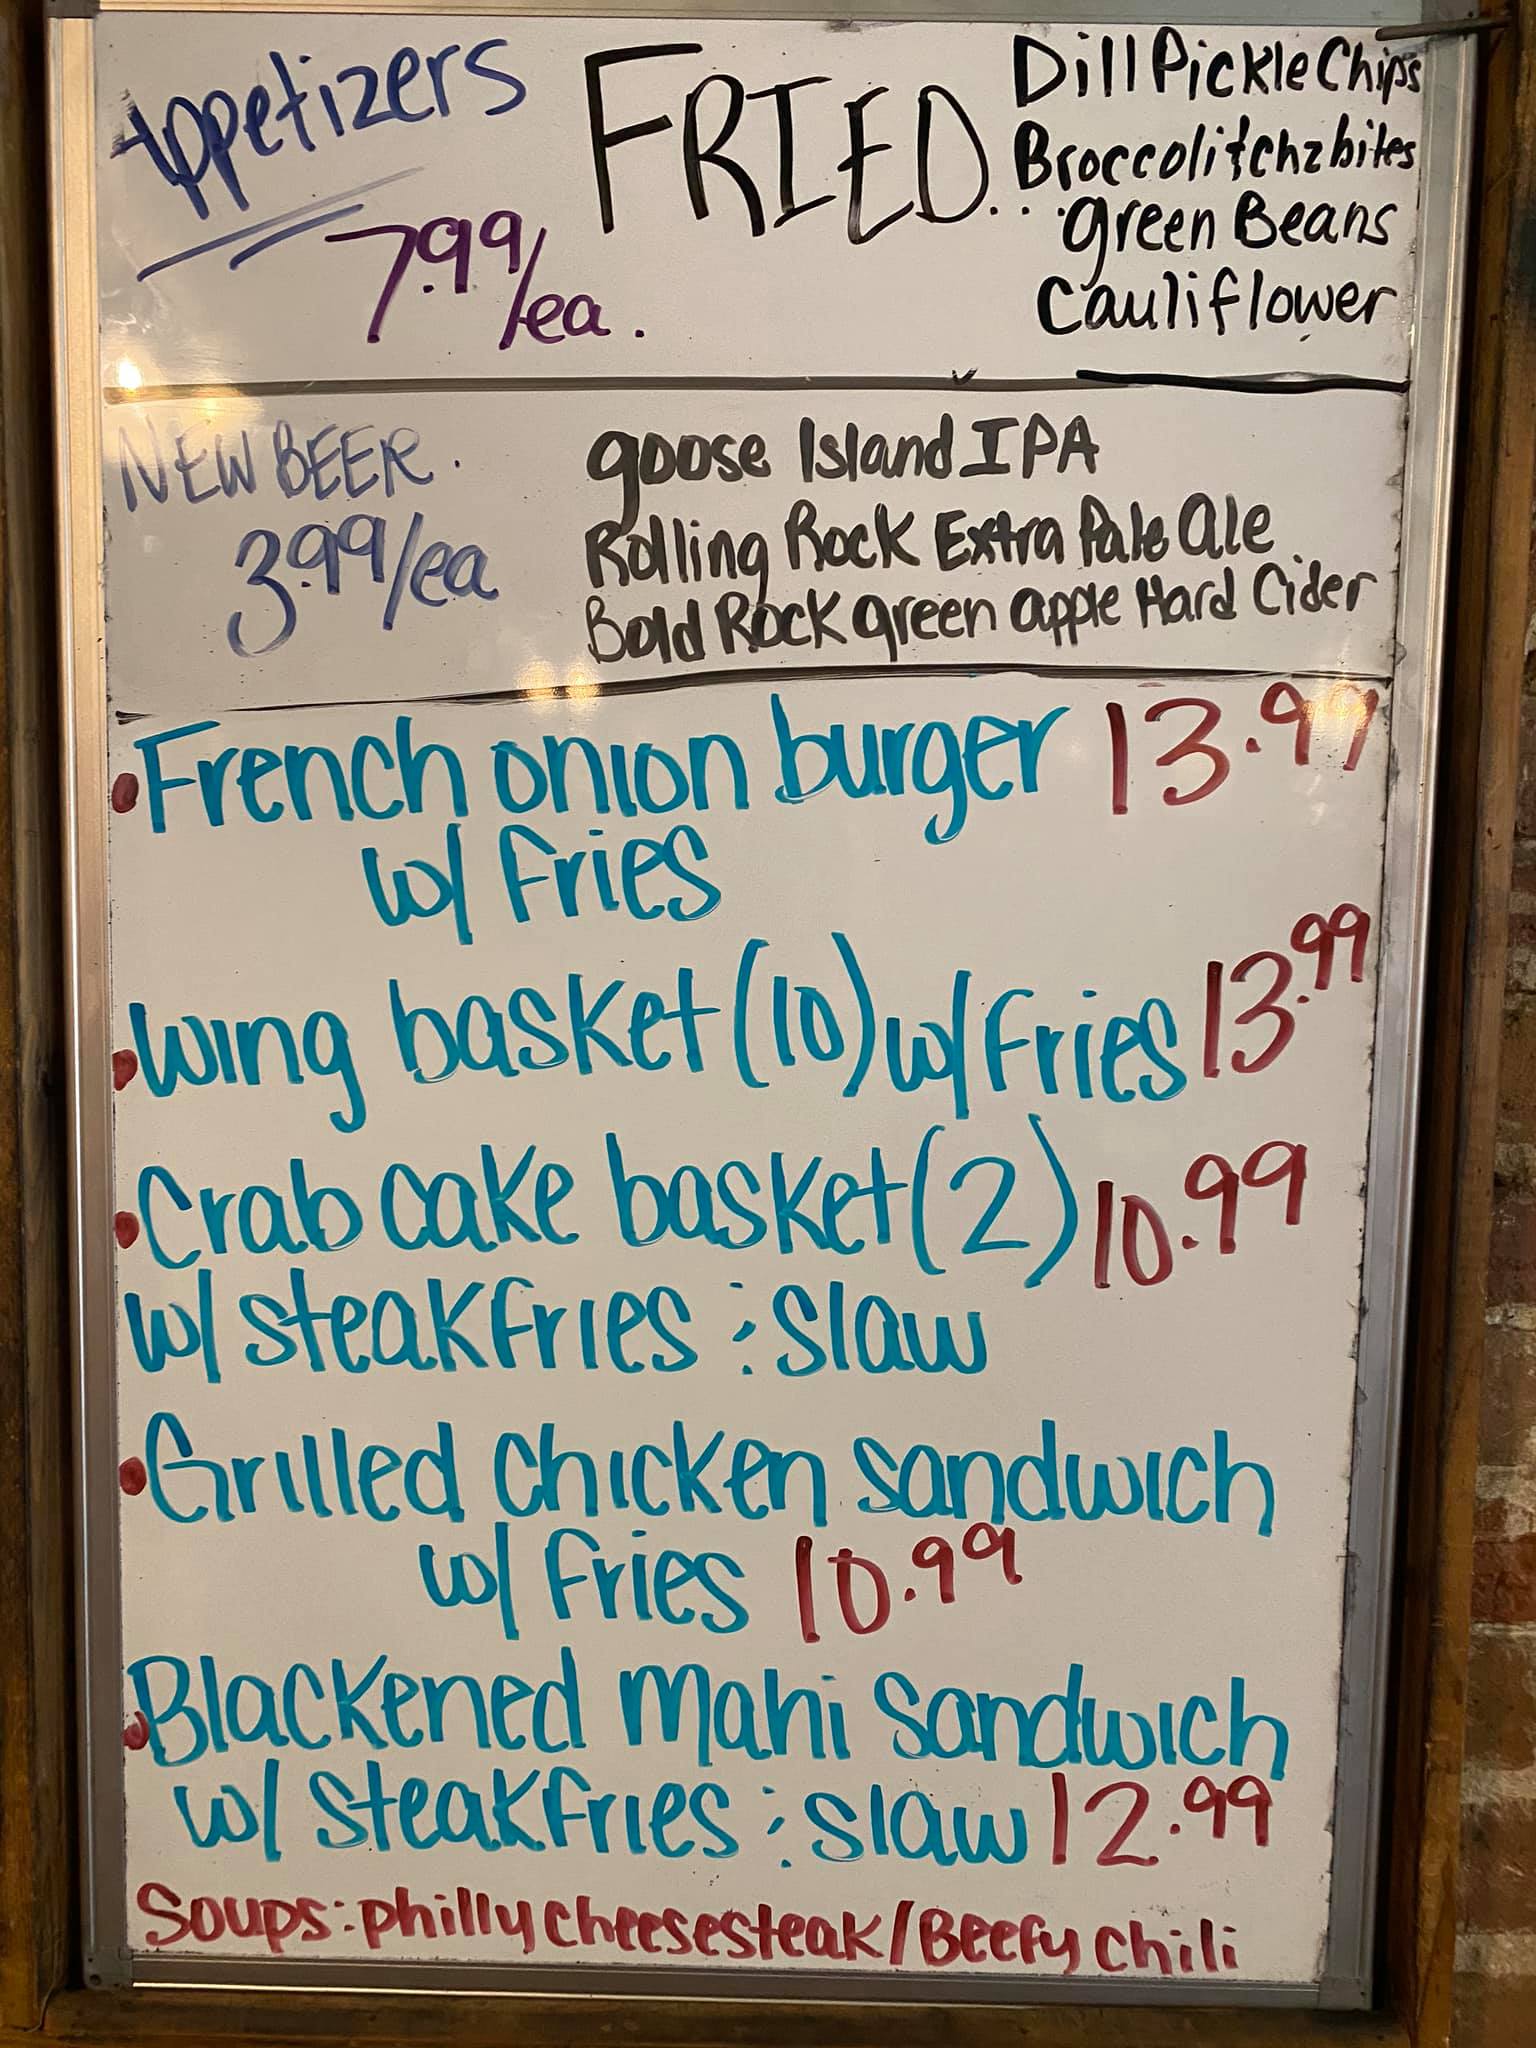 Appetizers
7.99/ea.
FRIED...
Dill Pickle Chips
Broccoli & chz bites
green Beans
Cauliflower
NEW BEER.
3.99/ea
goose Island IPA
Rolling Rock Extra Pale Ale
Bold Rock green apple Hard Cider
• French onion burger 13.99
w/ fries
• Wing basket (10) w/ fries 13.99
• Crab cake basket (2) 10.99
w/ steak fries & slaw
• Grilled chicken sandwich
w/ fries 10.99
• Blackened mahi sandwich
w/ steak fries & slaw 12.99
Soups: philly cheesesteak/Beefy chili